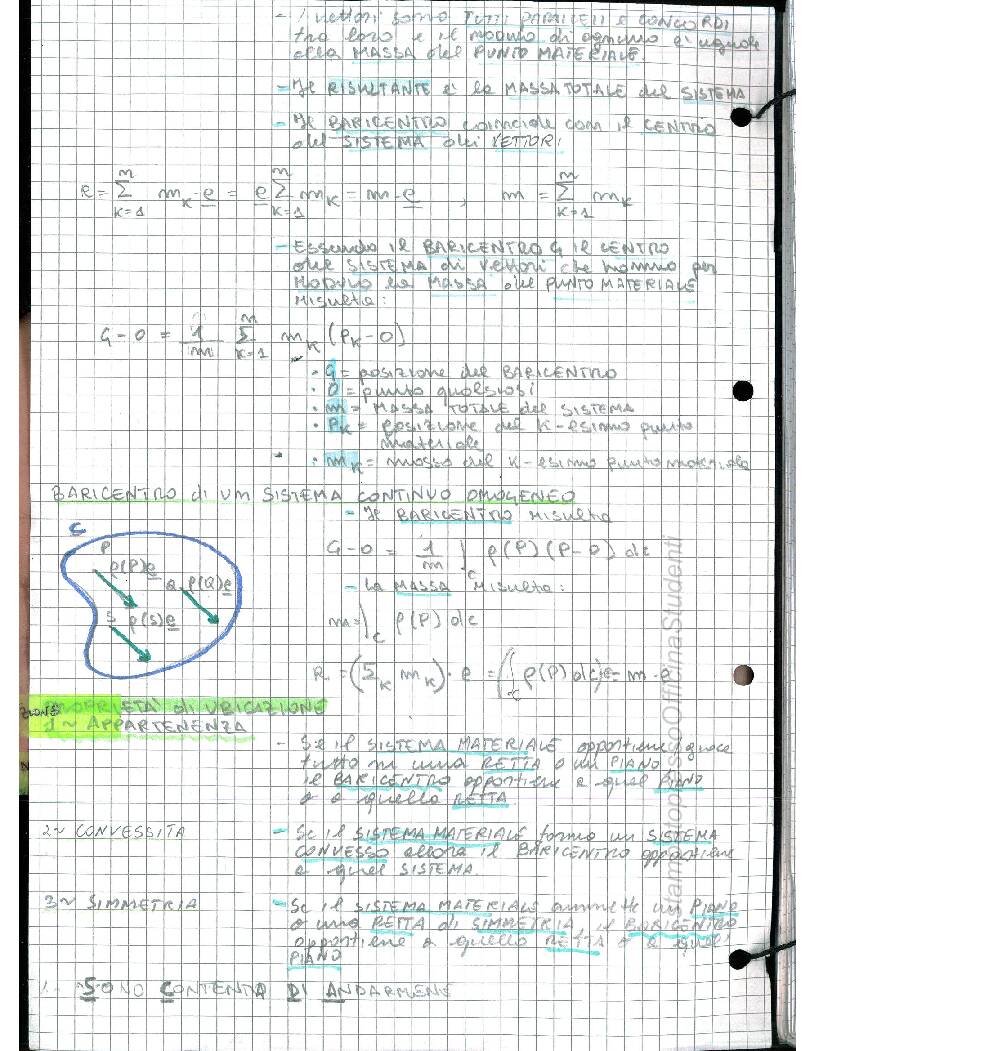 - I vettori sono TUTTI PARALLELI e CONCORDI
tra loro e il modulo di ognuno è uguale
alla MASSA del PUNTO MATERIALE.
- Il RISULTANTE è la MASSA TOTALE del SISTEMA
- Il BARICENTRO coincide con il CENTRO
del SISTEMA dei VETTORI
R = Σ_{K=1}^{n} m_K · e = e Σ_{K=1}^{n} m_K = m · e , m = Σ_{K=1}^{n} m_K
- Essendo il BARICENTRO G il CENTRO
del SISTEMA di Vettori che hanno per
MODULO la MASSA del PUNTO MATERIALE
risulta:
G-O = 1/m Σ_{K=1}^{n} m_K (P_K-O)
· G = posizione del BARICENTRO
· O = punto qualsiasi
· m = MASSA TOTALE del SISTEMA
· P_K = posizione del K-esimo punto
materiale
· m_K = massa del K-esimo punto materiale
BARICENTRO di UN SISTEMA CONTINUO OMOGENEO
- Il BARICENTRO risulta
C
P
ρ(P)e
Q ρ(Q)e
S ρ(S)e
G-O = 1/m ∫_C ρ(P)(P-O) dc
- La MASSA risulta:
m = ∫_C ρ(P) dc
R = (Σ_K m_K) · e = (∫_C ρ(P) dc)e = m · e
PROPRIETÀ di UBICAZIONE
ZIONE
1~ APPARTENENZA
- Se il SISTEMA MATERIALE appartiene/giace
tutto in una RETTA o un PIANO
il BARICENTRO appartiene a quel PIANO
o a quella RETTA
2~ CONVESSITÀ
- Se il SISTEMA MATERIALE forma un SISTEMA
CONVESSO allora il BARICENTRO appartiene
a quel SISTEMA.
3~ SIMMETRIA
- Se il SISTEMA MATERIALE ammette un PIANO
o una RETTA di SIMMETRIA, il BARICENTRO
appartiene a quella RETTA o a quel
PIANO
1- SONO CONTENTA DI ANDARMENE
StampatodopressoOfficinaStudenti